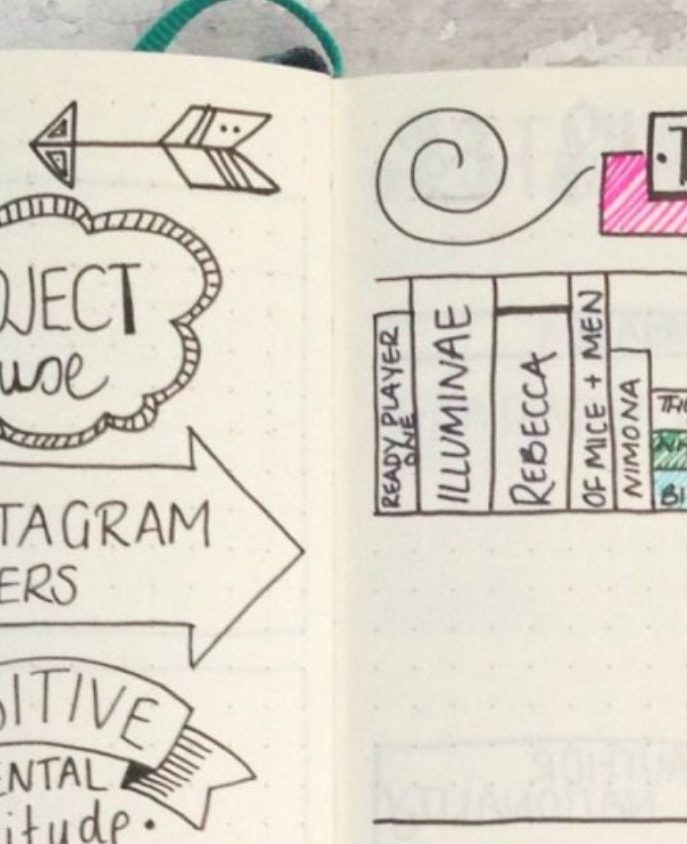 JECT
use
TAGRAM
ERS
SITIVE
ENTAL
itude.
READY PLAYER
ONE
ILLUMINAE
REBECCA
OF MICE + MEN
NIMONA
THE
BI
AUTHOR
NATIONALITY